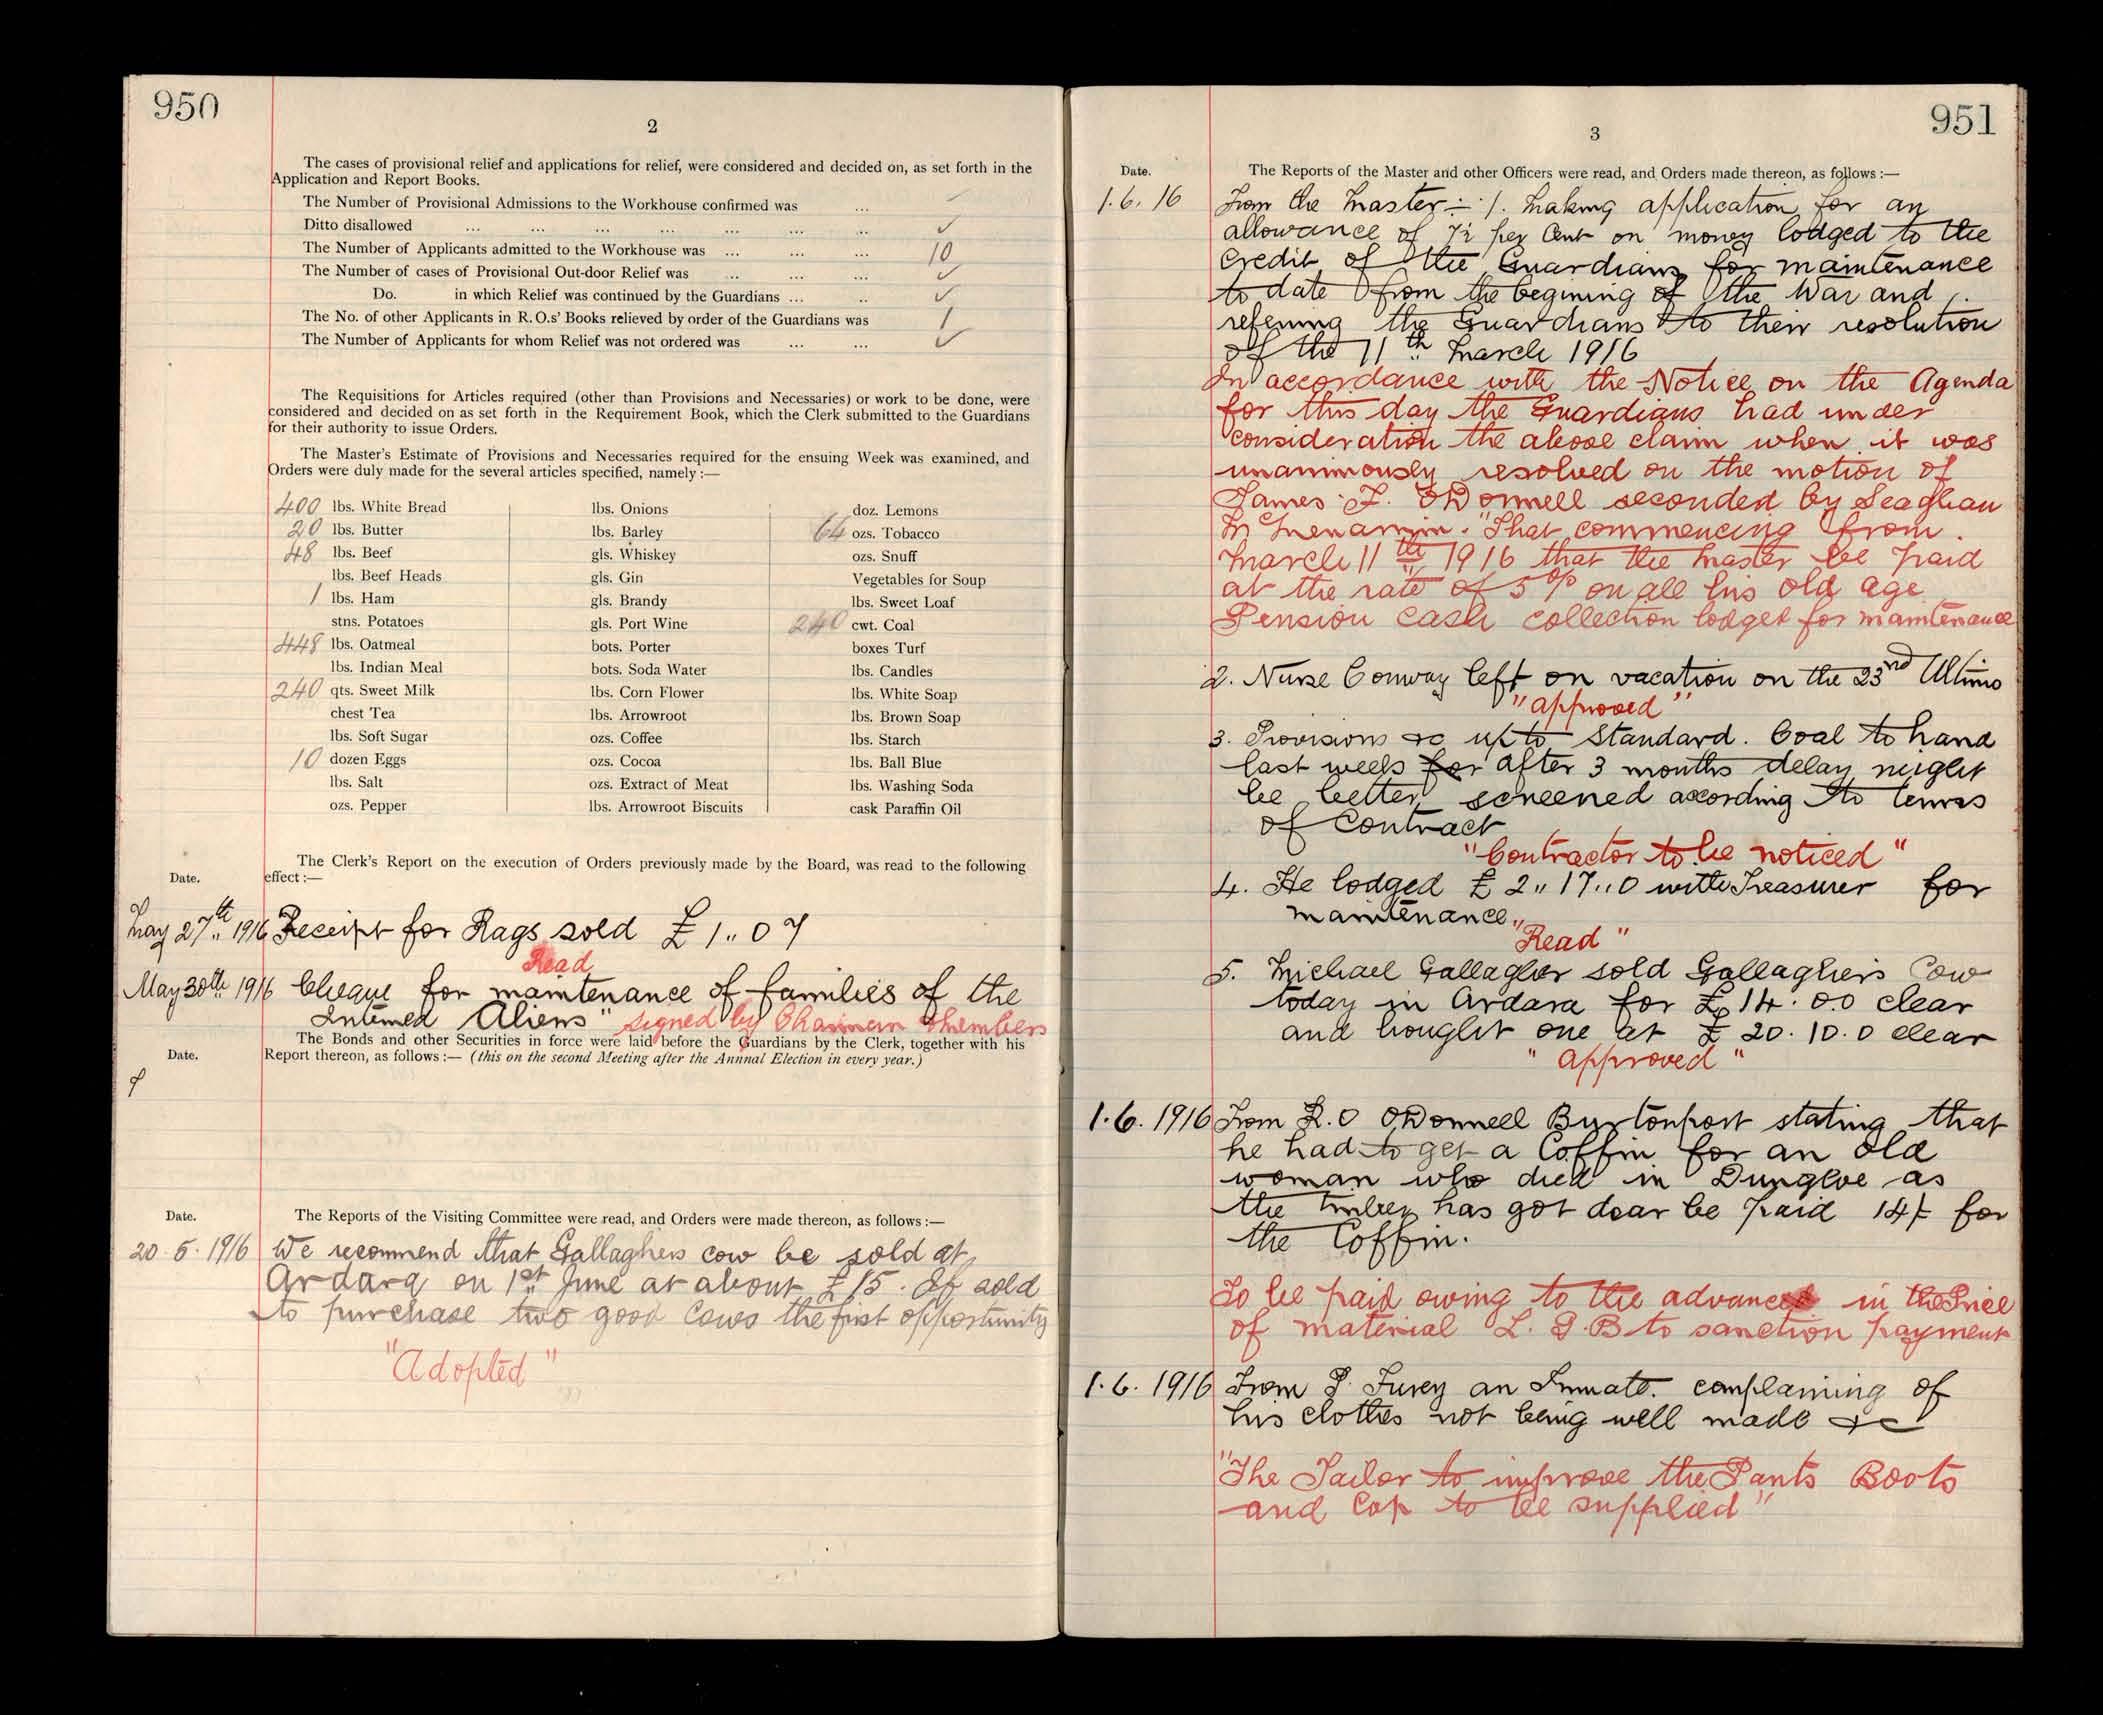 950
2
The cases of provisional relief and applications for relief, were considered and decided on, as set forth in the
Application and Report Books.
The Number of Provisional Admissions to the Workhouse confirmed was ... ✓
Ditto disallowed ... ... ... ... ... ... ... ✓
The Number of Applicants admitted to the Workhouse was ... ... ... 10
The Number of cases of Provisional Out-door Relief was ... ... ... ✓
Do. in which Relief was continued by the Guardians ... .. ✓
The No. of other Applicants in R.O.s' Books relieved by order of the Guardians was 1
The Number of Applicants for whom Relief was not ordered was ... ... ✓
The Requisitions for Articles required (other than Provisions and Necessaries) or work to be done, were
considered and decided on as set forth in the Requirement Book, which the Clerk submitted to the Guardians
for their authority to issue Orders.
The Master's Estimate of Provisions and Necessaries required for the ensuing Week was examined, and
Orders were duly made for the several articles specified, namely :—
400 lbs. White Bread
20 lbs. Butter
48 lbs. Beef
lbs. Beef Heads
1 lbs. Ham
stns. Potatoes
448 lbs. Oatmeal
lbs. Indian Meal
240 qts. Sweet Milk
chest Tea
lbs. Soft Sugar
10 dozen Eggs
lbs. Salt
ozs. Pepper
lbs. Onions
lbs. Barley
gls. Whiskey
gls. Gin
gls. Brandy
gls. Port Wine
bots. Porter
bots. Soda Water
lbs. Corn Flower
lbs. Arrowroot
ozs. Coffee
ozs. Cocoa
ozs. Extract of Meat
lbs. Arrowroot Biscuits
doz. Lemons
64 ozs. Tobacco
ozs. Snuff
Vegetables for Soup
lbs. Sweet Loaf
240 cwt. Coal
boxes Turf
lbs. Candles
lbs. White Soap
lbs. Brown Soap
lbs. Starch
lbs. Ball Blue
lbs. Washing Soda
cask Paraffin Oil
The Clerk's Report on the execution of Orders previously made by the Board, was read to the following
Date. effect :—
May 27th 1916 Receipt for Rags sold £1.. 0 7
Read
May 30th 1916 Cheque for maintenance of families of the
Interned Aliens" signed by Chairman & members
The Bonds and other Securities in force were laid before the Guardians by the Clerk, together with his
Date. Report thereon, as follows :— (this on the second Meeting after the Annnal Election in every year.)
Date. The Reports of the Visiting Committee were read, and Orders were made thereon, as follows :—
20.5.1916 We recommend that Gallaghers cow be sold at
Ardara on 1st June at about £15. If sold
to purchase two good cows the first opportunity
"Adopted"
951
3
Date. The Reports of the Master and other Officers were read, and Orders made thereon, as follows :—
1.6.16 From the Master :- 1. Making application for an
allowance of 7½ per Cent on money lodged to the
credit of the Guardians for maintenance
to date from the begining of the War and
refering the Guardians to their resolution
of the 11th March 1916
In accordance with the Notice on the Agenda
for this day the Guardians had under
consideration the above claim when it was
unanimously resolved on the motion of
James F. O'Donnell seconded by Seaghan
McMenamin. "That commencing from
March 11th 1916 that the Master be paid
at the rate of 5% on all his old age
Pension cash collection lodget for maintenance
2. Nurse Conway left on vacation on the 23nd Ultimo
"approved"
3. Provisions &c up to Standard. Coal to hand
last week for after 3 months delay might
be better screened according to terms
of Contract
"Contractor to be noticed"
4. He lodged £2..17..0 with Treasurer for
maintenance.
"Read"
5. Michael Gallagher sold Gallaghers Cow
today in Ardara for £14.0.0 clear
and bought one at £20.10.0 clear
"approved"
1.6.1916 From R.O O'Donnell Burtonport stating that
he had to get a Coffin for an old
woman who died in Dungloe as
the timber has got dear be paid 14/- for
the Coffin.
To be paid owing to the advance in the Price
of material L.G.B to sanction payment
1.6.1916 From P. Furey an Inmate. complaining of
his clothes not being well made &c
"The Tailor to improve the Pants Boots
and Cap to be supplied"